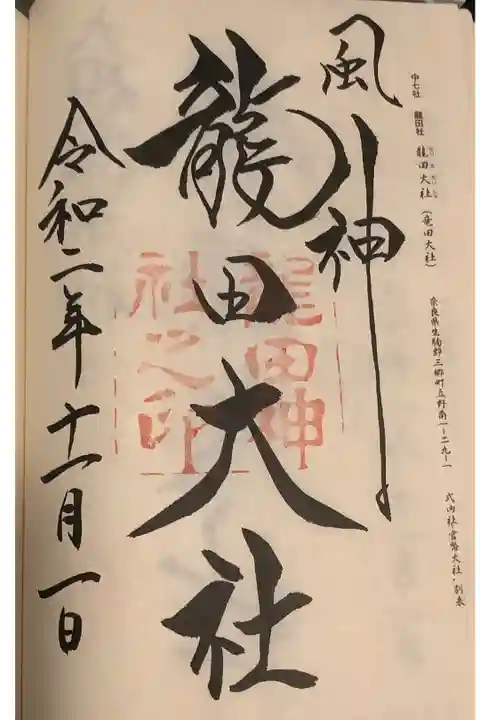 中七社 龍田社 龍田大社(竜田大社) 奈良県生駒郡三郷町立野南一-二九-一 式内社官幣大社・別表
風神
龍田大社
龍田神
社之印
令和二年十一月一日